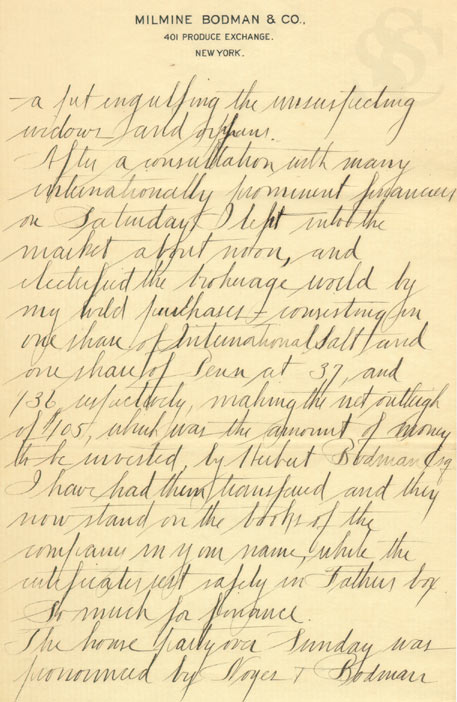 MILMINE BODMAN & CO.,
401 PRODUCE EXCHANGE.
NEW YORK.
- a pit engulfing the unsuspecting
widows and orphans.
After a consultation with many
internationally prominent financiers
on Saturday, I lept into the
market about noon, and
electrified the brokerage world by
my wild purchases - consisting in
one share of International Salt and
one share of Penn at 37, and
136 respectively, making the net outleigh
of $105, which was the amount of money
to be invested, by Herbert Bodman Esq
I have had them transfered and they
now stand on the books of the
companies in your name, while the
certificates rest safely in Fathers box
So much for finance.
The house party over Sunday was
pronounced by Noyes + Bodman